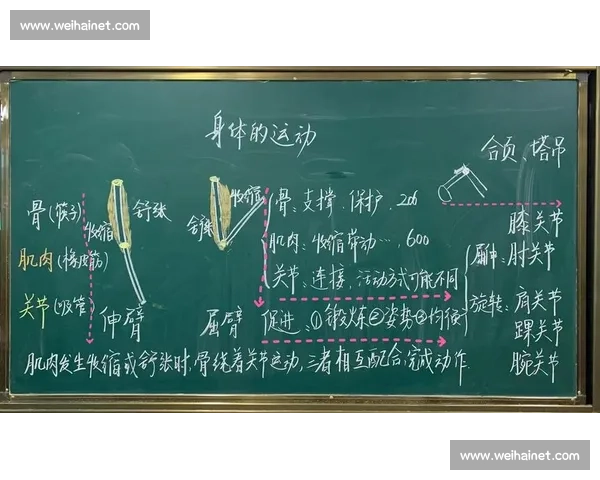 www.weihainet.com
身体的运动
合页、塔吊
骨(筷子)
肌肉(橡皮筋)
关节(吸管)
收缩
舒张
伸臂
舒张
收缩
屈臂
骨:支撑、保护、206
肌肉:收缩带动…,600
关节:连接、活动方式可能不同
促进:①锻炼②姿势③均衡
屈伸:
膝关节
肘关节
旋转:
肩关节
踝关节
腕关节
肌肉发生收缩或舒张时,骨绕着关节运动,三者相互配合,完成动作.
www.weihainet.com